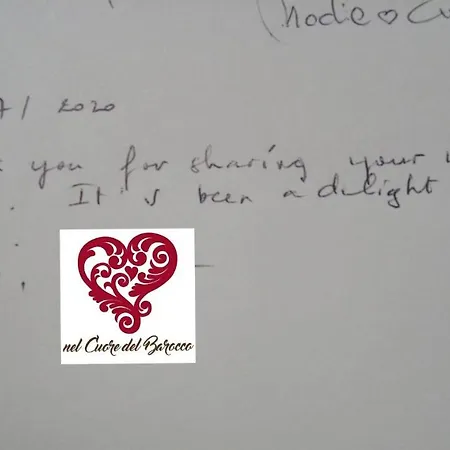 / 2020
you for sharing your
. It's been a delight
nel Cuore del Barocco